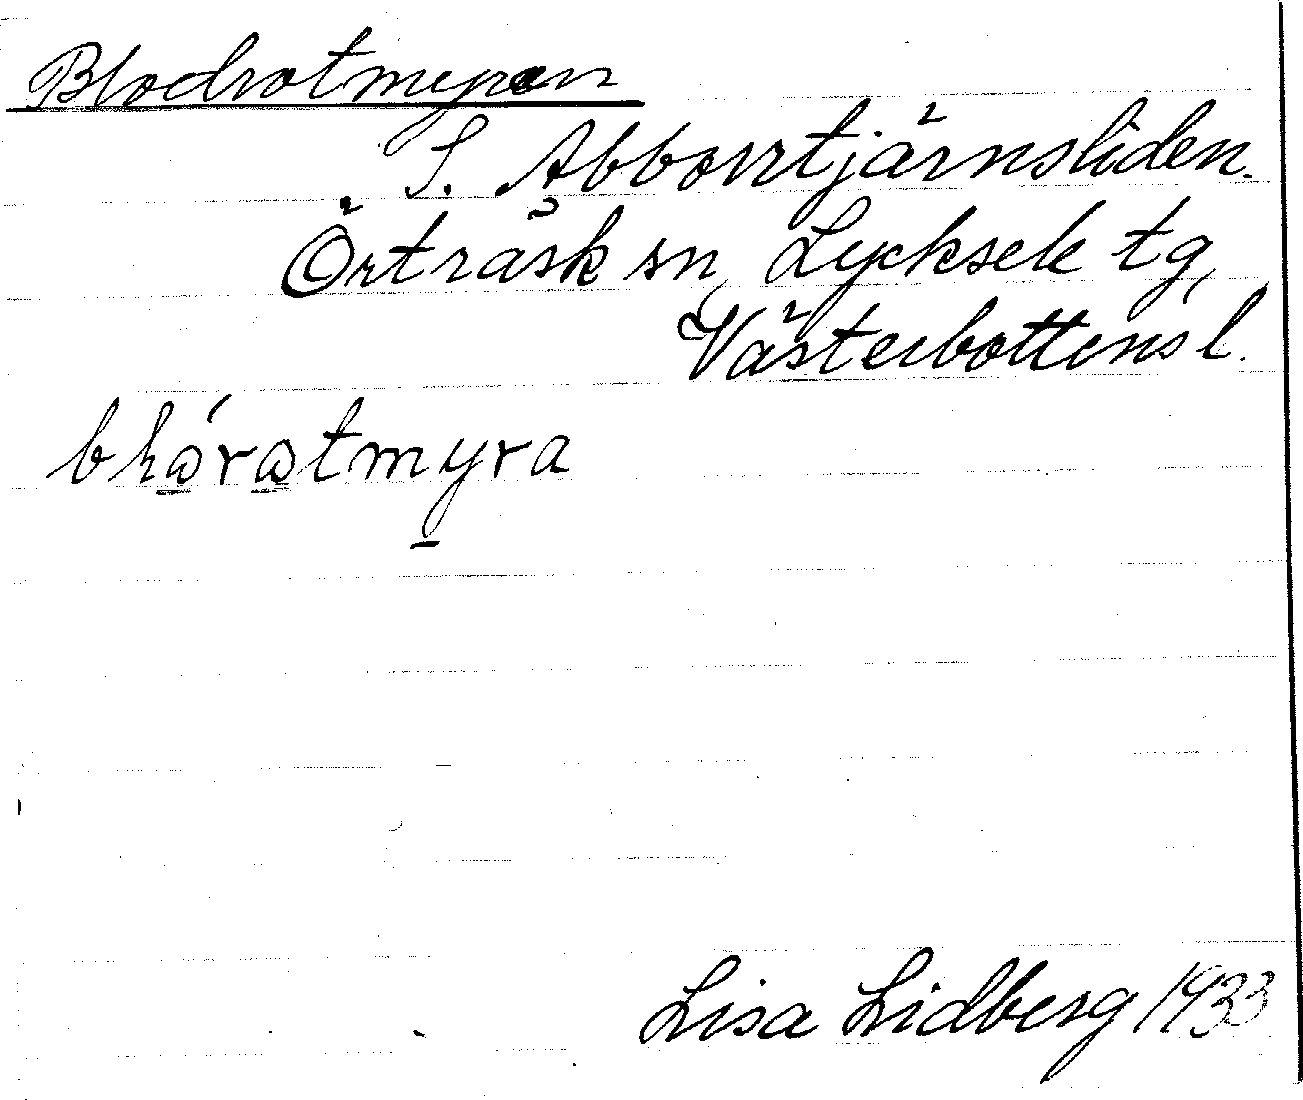 Blodrotmyran
S. Abborrtjärnsliden.
Örträsk sn, Lycksele tg,
Västerbottens l.
Lisa Lidberg 1933